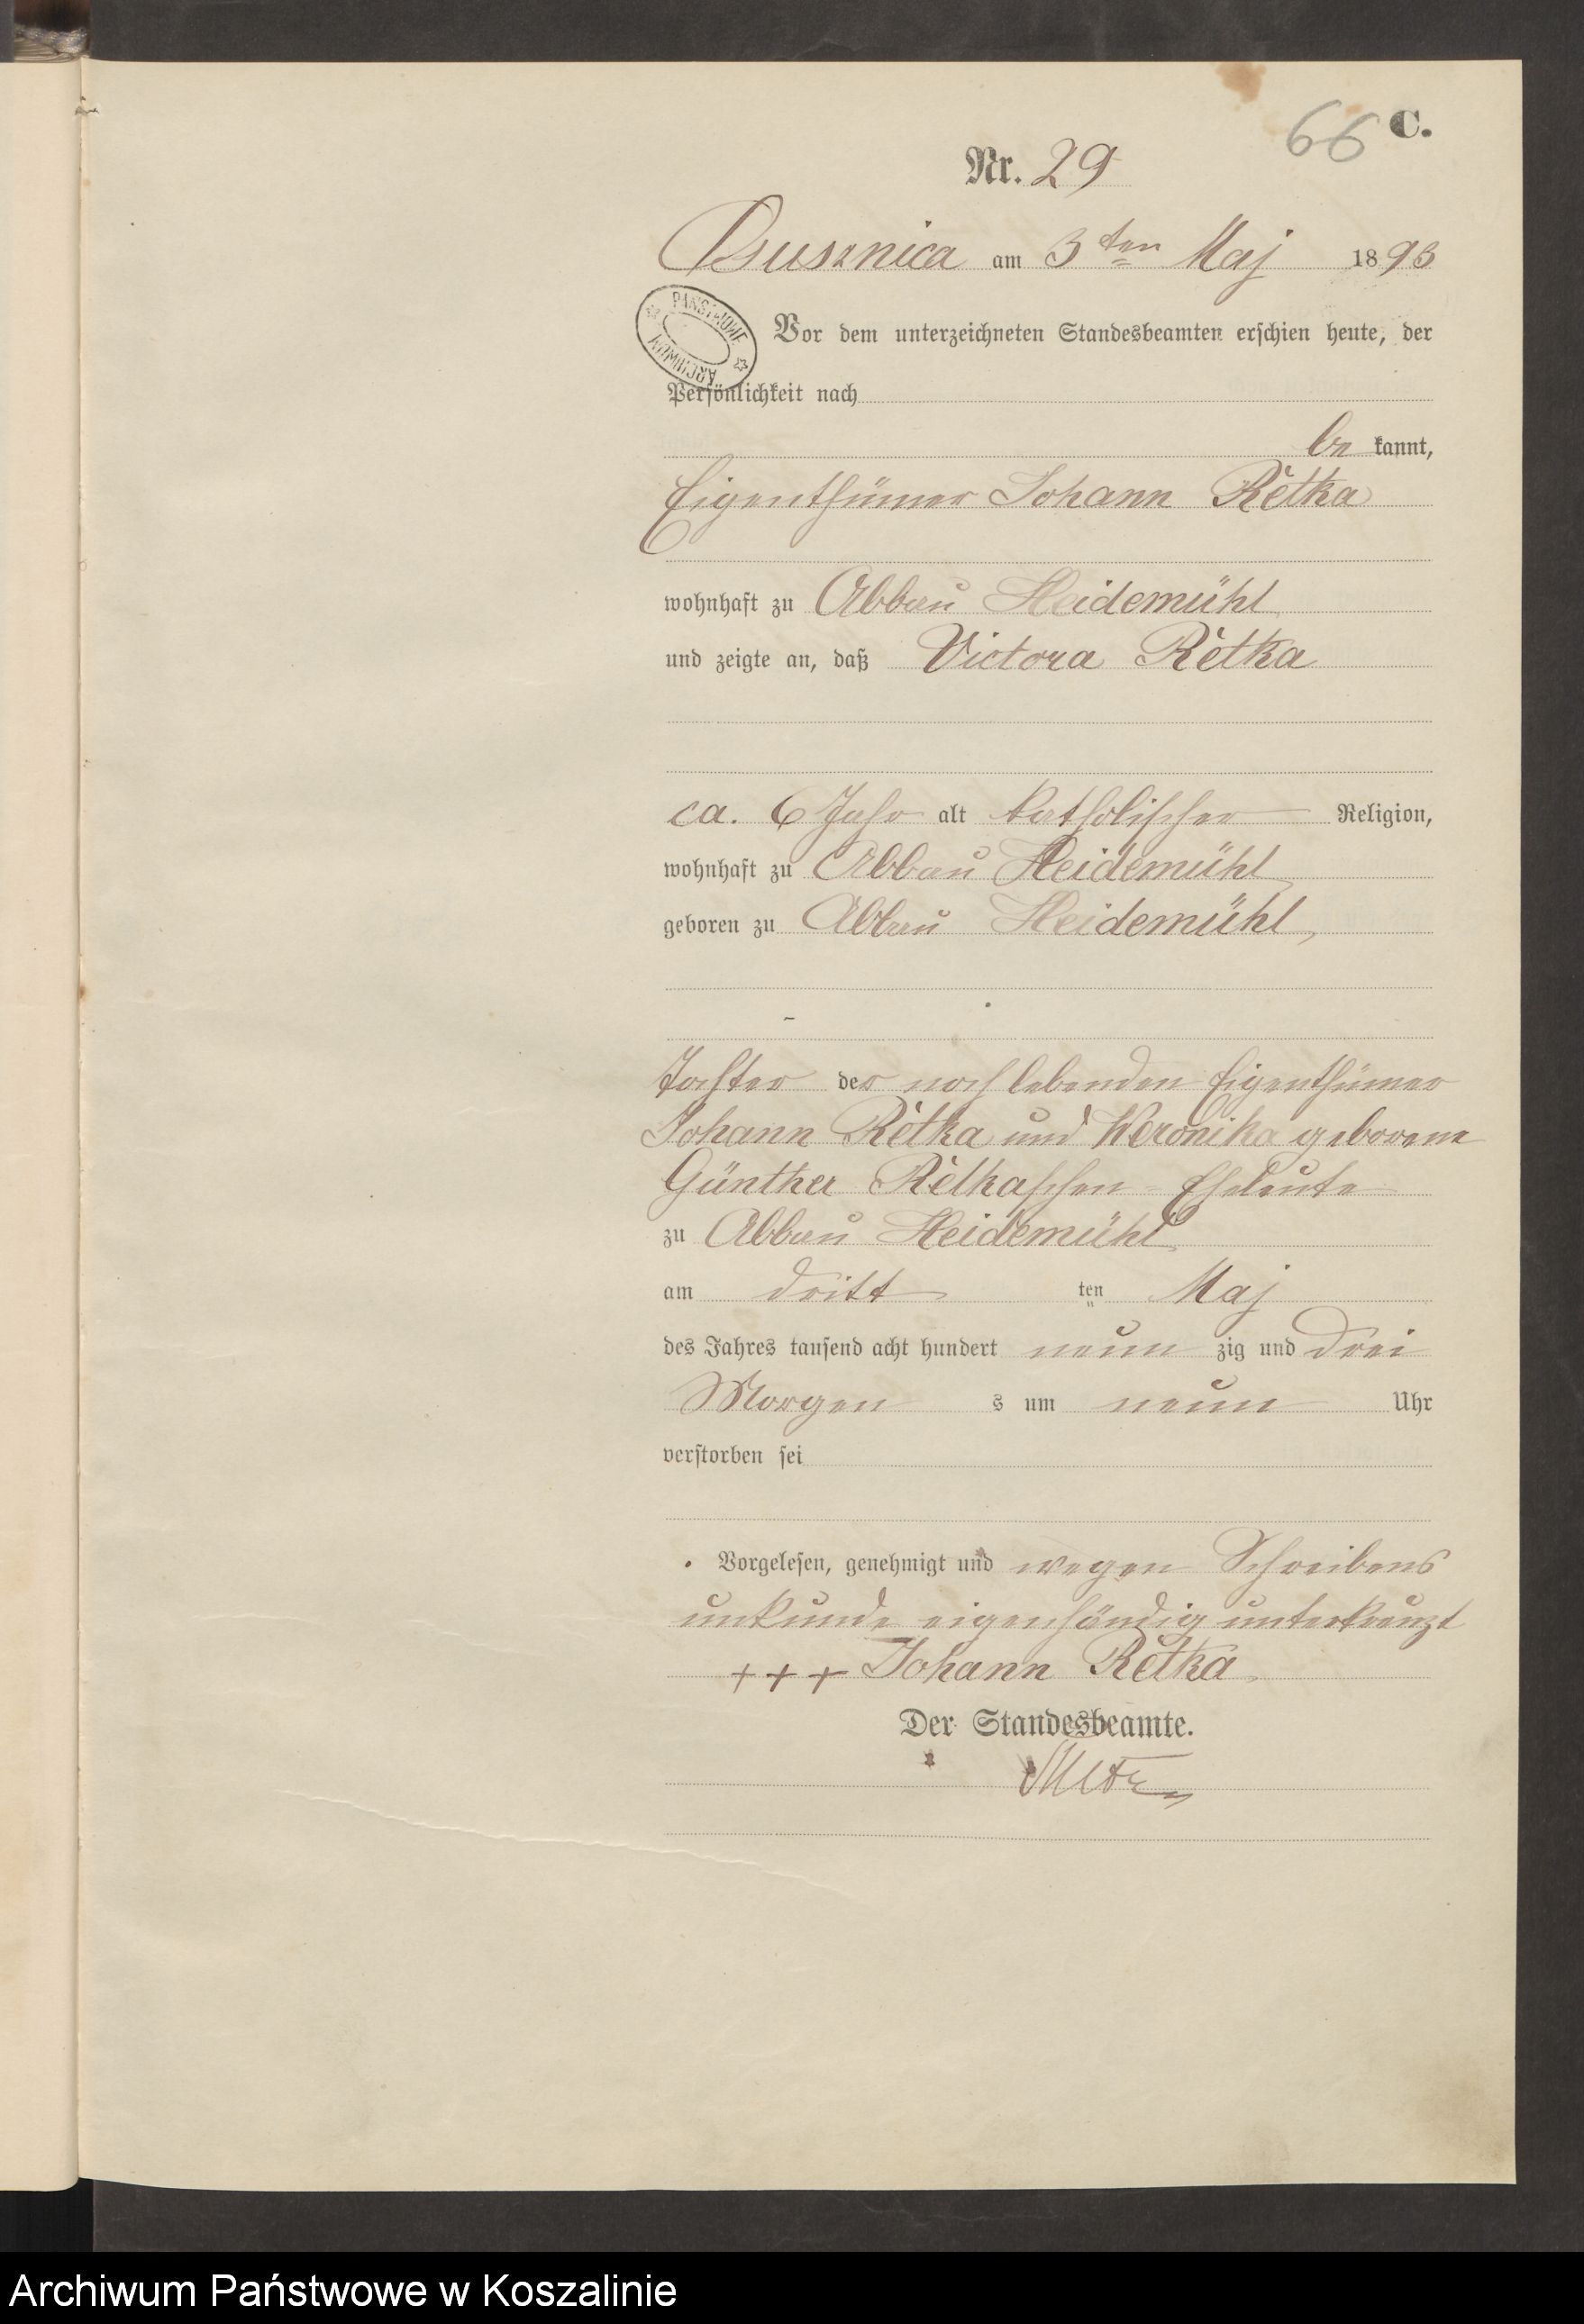 66 C.
Nr. 29
Buschnica am 3ten Maj 1893
PAŃSTWOWE
ARCHIWUM
Vor dem unterzeichneten Standesbeamten erschien heute, der
Persönlichkeit nach
be kannt,
Eigenthümer Johann Rètka
wohnhaft zu Abbau Heidemühl
und zeigte an, daß Victora Rètka
ca. 6 Jahr alt katholischer Religion,
wohnhaft zu Abbau Heidemühl
geboren zu Abbau Heidemühl,
Tochter der noch lebenden Eigenthümer
Johann Rètka und Weronika geborene
Günther Rètkaschen Eheleute
zu Abbau Heidemühl
am dritt ten Maj
des Jahres tausend acht hundert neun zig und drei
Morgen s um neun Uhr
verstorben sei
Vorgelesen, genehmigt und wegen Schreibens
unkunde eigenhändig unterkreuzt
+++ Johann Rètka
Der Standesbeamte.
Archiwum Państwowe w Koszalinie